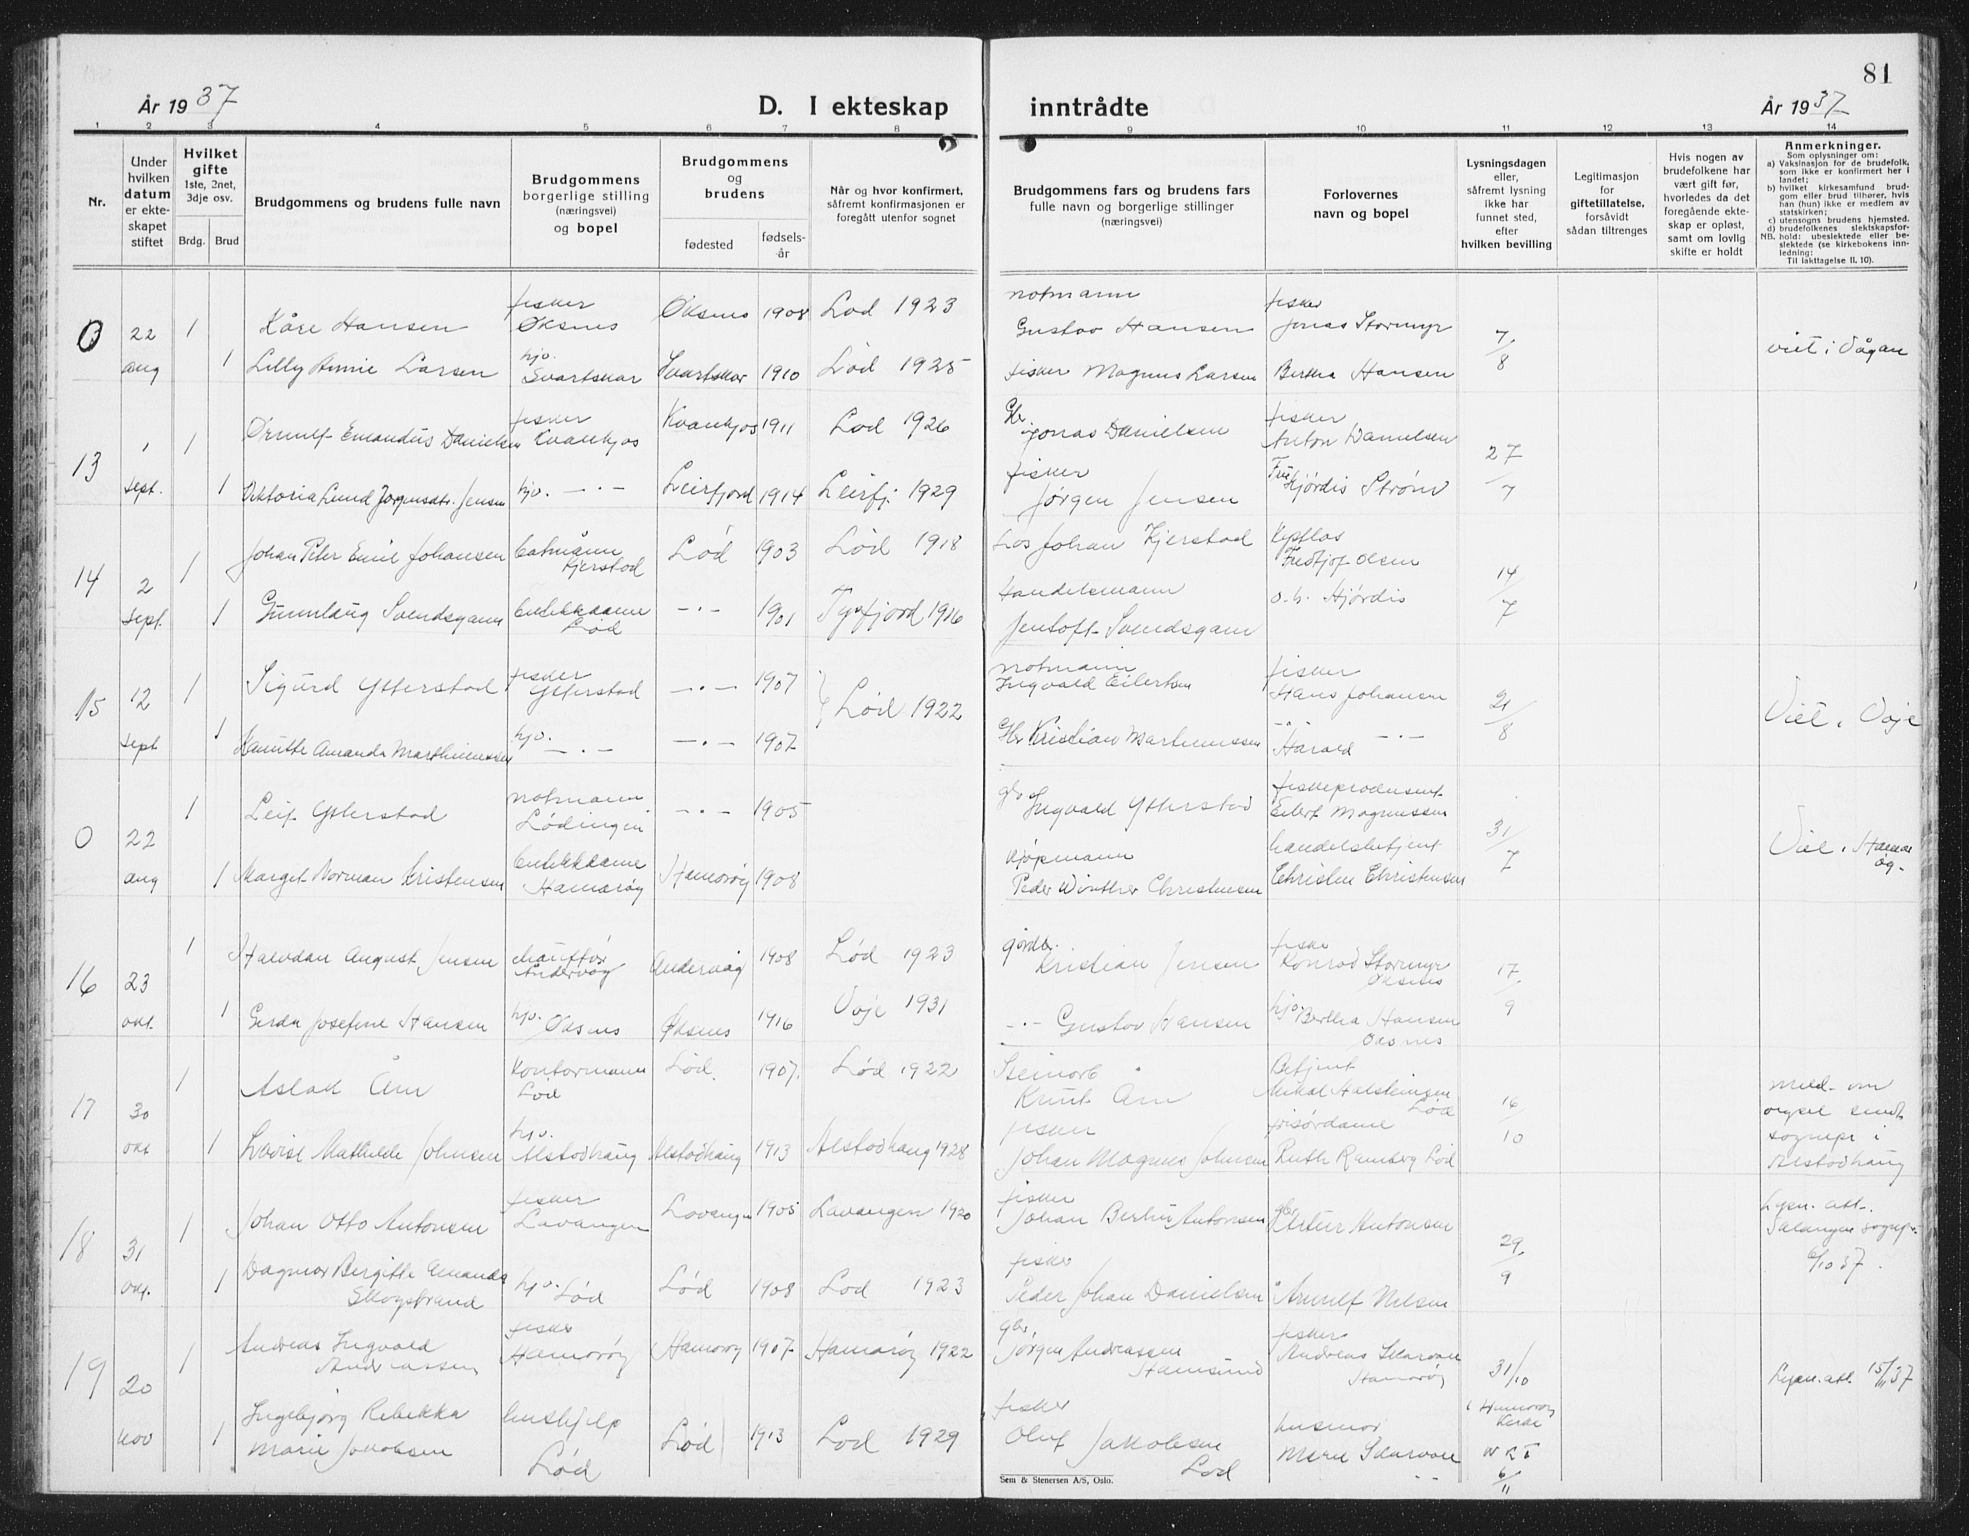 81
År 1937
D. I ekteskap inntrådte
År 1937
1 2 3 4 5 6 7 8 9 10 11 12 13 14
Nr.
Under hvilken datum er ekteskapet stiftet
Hvilket gifte
1ste, 2net, 3dje osv.
Brdg. Brud
Brudgommens og brudens fulle navn
Brudgommens borgerlige stilling (næringsvei) og bopel
Brudgommens og brudens
fødested
fødsels-år
Når og hvor konfirmert, såfremt konfirmasjonen er foregått utenfor sognet
Brudgommens fars og brudens fars fulle navn og borgerlige stillinger (næringsvei)
Forlovernes navn og bopel
Lysningsdagen eller, såfremt lysning ikke har funnet sted, efter hvilken bevilling
Legitimasjon for giftetillatelse, forsåvidt sådan tiltrenges
Hvis nogen av brudefolkene har vært gift før, hvorledes da det foregående ekteskap er opløst, samt om lovlig skifte er holdt
Anmerkninger.
Som oplysninger om:
a) Vaksinasjon for de brudefolk, som ikke er konfirmert her i landet;
b) hvilket kirkesamfund brudgom eller brud tilhører, hvis han (hun) ikke er medlem av statskirken;
c) utensogns brudens hjemsted.
d) brudefolkenes slektskapsforhold: ubeslektede eller beslektede (se kirkebokens innledning:
NB. Til iakttagelse II. 10).
0 22 aug 1 Kåre Hansen fisker Øksnes Øksnes 1908 Lød 1923 notmann Gustav Hansen fisker Jonas Stormyr 7/8 viet i Vågan
1 Lilly Annie Larsen hjv. Svartskar Svartskar 1910 Lød 1925 fisker Magnus Larsen Bertha Hansen
13 1 sept. 1 Ørnulf Emandus Danielsen fisker Kvankjos Kvankjos 1911 Lød 1926 Gbr Jonas Danielsen fisker Anton Danielsen 27/7
1 Viktoria Lund Jørgensdtr. Jensen hjv. -"- Leirfjord 1914 Leirfj. 1929 fisker Jørgen Jensen Fru Hjördis Strøm
14 2 sept. 1 Johan Peter Emil Johansen Kjerstad Lød 1903 Lød 1918 Los Johan Kjerstad Fridtjof Olsen 14/7
1 Gunnlaug Svendsgam butikkdame Lød -"- 1901 Tysfjord 1916 Handelsmann Jentoft Svendsgam o.h. Hjørdis
15 12 sept 1 Sigurd Ytterstad fisker Ytterstad -"- 1907 Lød 1922 notmann Ingvald Eilertsen fisker Hans Johansen 21/8 Viet i Vøje
1 Amanda Marthinussen hjv. -"- -"- 1907 Gbr Kristian Marthinussen -"- Harald -"-
0 22 aug 1 Leif Ytterstad notmann Lødingen -"- 1905 gbr Ingvald Ytterstad fiskeprodusent Eilert Magnussen 31/7 Viet i Hamarøy
1 Margit Norman Kristensen butikkdame Hamarøy Hamarøy 1908 kjøpmann Peder Winther Christensen handelsbetjent Christen Christensen
16 23 okt. 1 Halvdan August Jensen chauffør Andervåg Andervåg 1908 Lød 1923 gårdbr. Kristian Jensen fisker Konrad Stormyr Øksnes 17/9
1 Gerda Josefine Hansen hjv. Øksnes Øksnes 1916 Vøje 1931 -"- Gustav Hansen hjv. Bertha Hansen Øksnes
17 30 okt 1 Aslak Åm kontormann Lød Lød. 1907. Lød 1922 Steinarb Knut Åm Betjent Mikal Halsteinsen Lød 16/10 meld. om sendt sognepr i Alstadhaug
1 Lovise Mathilde Johnsen hjv. Alstadhaug Alstadhaug 1913 Alstadhaug 1928 fisker Johan Magnus Johnsen frisørdame Ruth Ramberg Lød
18 31 okt. 1 Johan Otto Antonsen fisker Lavangen Lavangen 1905 Lavangen 1920 fisker Johan Antonsen gbr Artur Antonsen 29/9 Lysn. att. Salangen sognepr. 6/10 37.
1 Dagmar Bergitte Amanda Skogstrand hjv. Lød Lød 1908 Lød 1923 fisker Peder Johan Danielsen Arnulf Nilsen
19 20 nov 1 Andreas Ingvald Andreassen fisker Hamarøy Hamarøy 1907 Hamarøy 1922 gbr Jørgen Andreassen Hamsund fisker Andreas Skarvan Hamarøy 31/10 i Hamarøy kirke Lysn.att. 15/11 37
1 Ingebjørg Rebekka Marie Jakobsen hushjelp Lød Lød 1913 Lød 1929 fisker Oluf Jakobsen Lød husmor Marie Skarvan -"- 6/11
Sem & Stenersen A/S, Oslo.